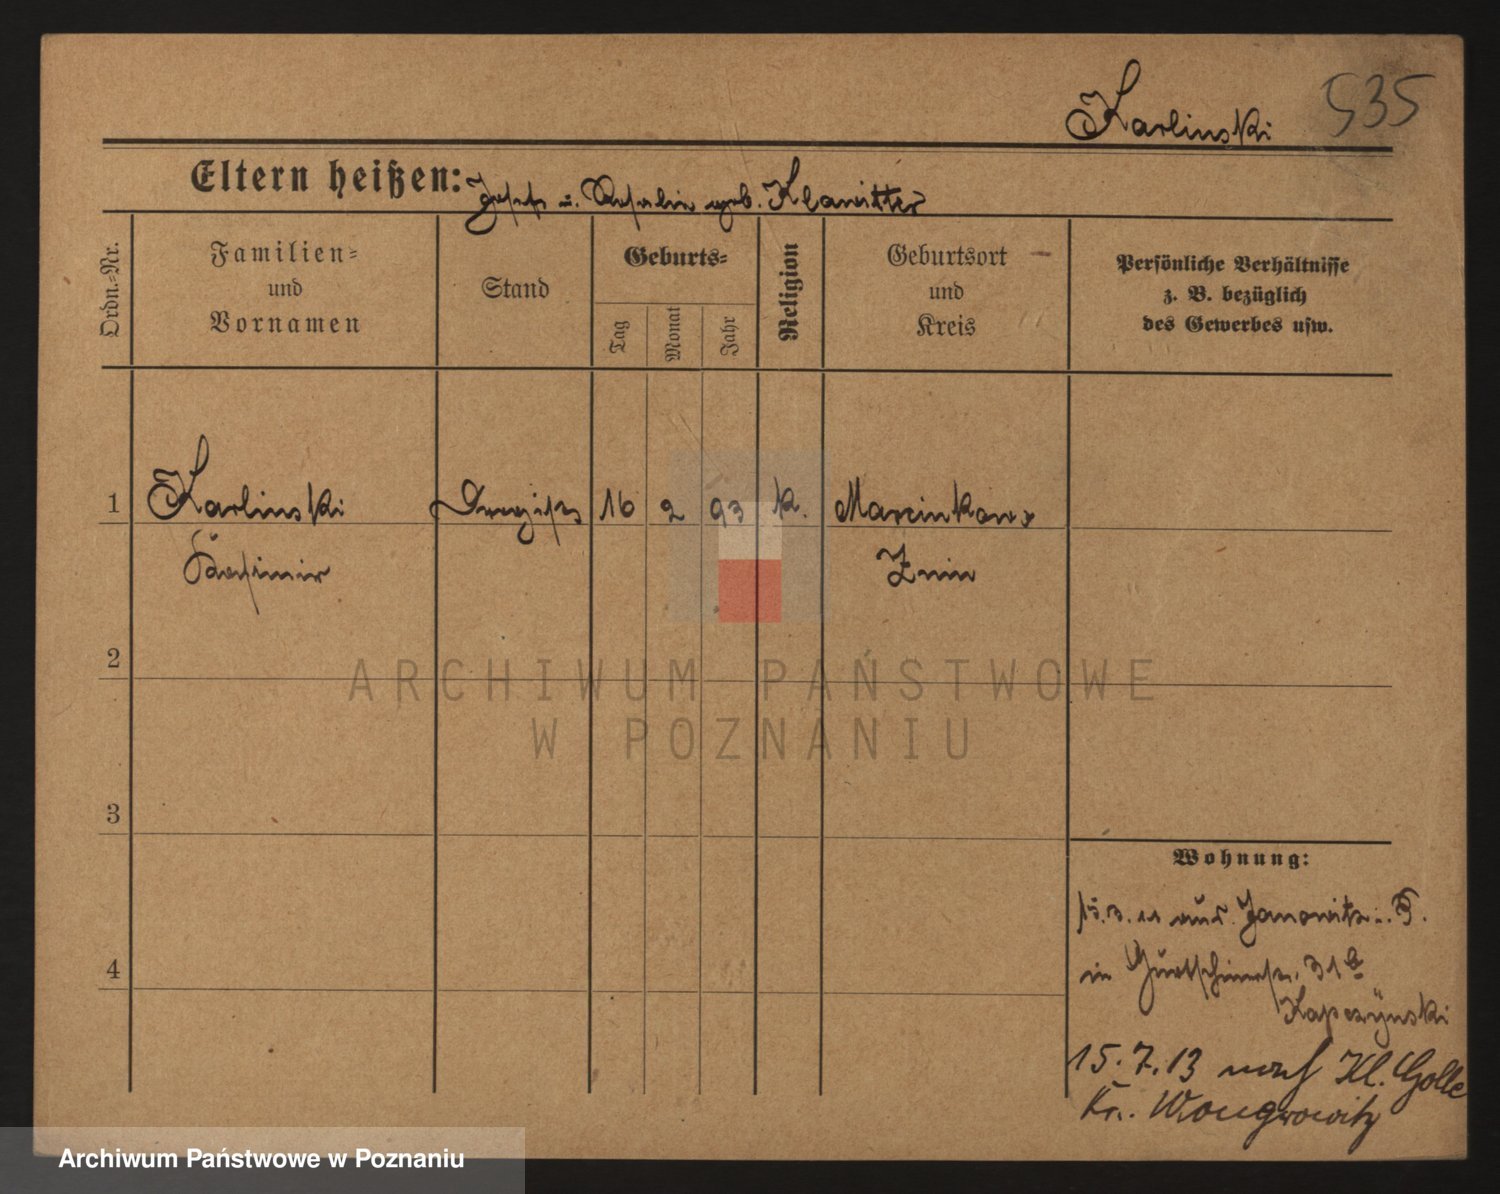 Karlinski 535
Eltern heißen: Josef u. Rosalie geb. Klawitter
Ordn.=Nr.
Familien=
und
Vornamen
Stand
Geburts=
Tag
Monat
Jahr
Religion
Geburtsort
und
Kreis
Persönliche Verhältnisse
z. B. bezüglich
des Gewerbes usw.
1 Karlinski 16 2 93 k. Marcinkowo
Kasimir Znin
2
3
4
Wohnung:
15.3.11 aus Janowitz
in Gurtschinerstr. 31
Kapczÿnski
15.7.13 nach Kl. Golle
Kr. Wongrowitz
ARCHIWUM PAŃSTWOWE
W POZNANIU
Archiwum Państwowe w Poznaniu